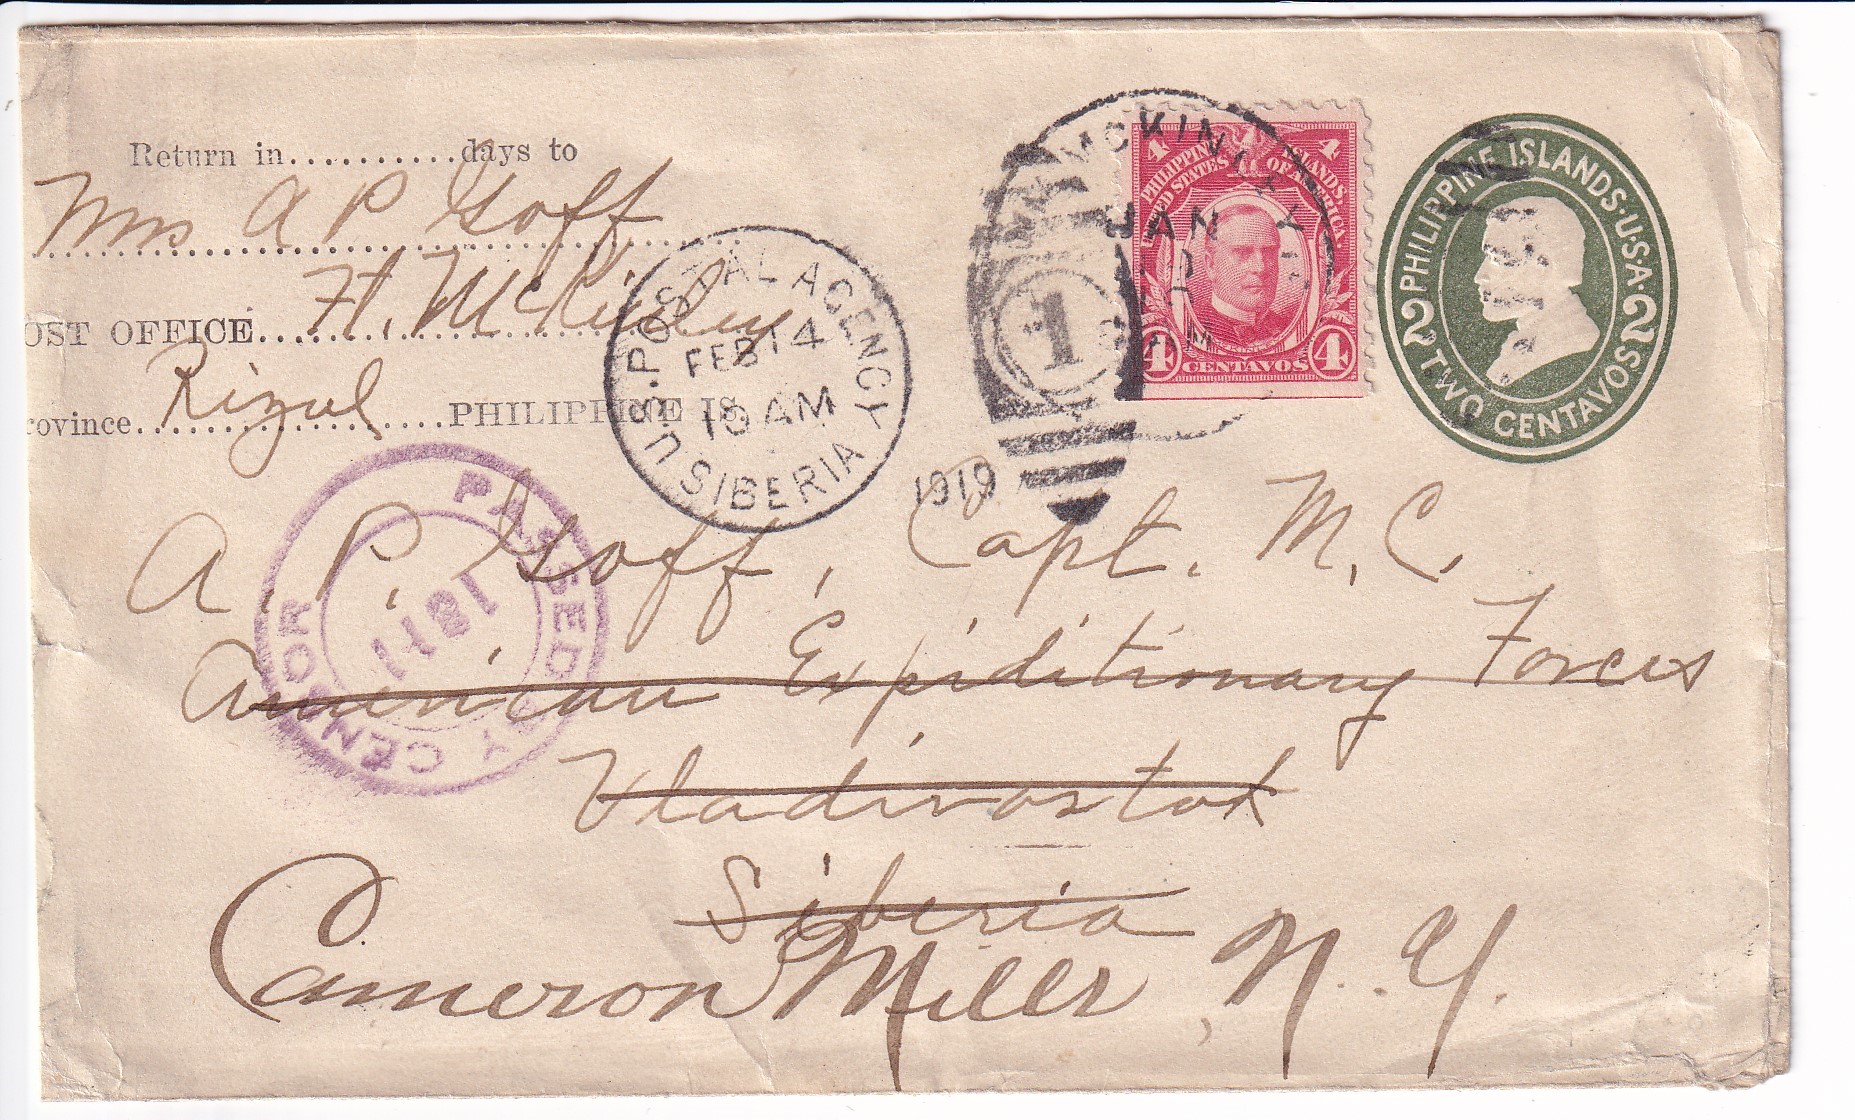 Return in...........days to
Mrs A P Goff
OST OFFICE Ft. McKinley
rovince Rizal PHILIPPINE IS.
U.S. POSTAL AGENCY
FEB 14
10 AM
SIBERIA
1919
MCKINLEY
JAN
1
4 4
PHILIPPINE ISLANDS
UNITED STATES OF AMERICA
4 CENTAVOS 4
PHILIPPINE ISLANDS·U·S·A·
2 TWO CENTAVOS 2
PASSED BY CENSOR
1811
A. P. Goff, Capt. M. C.
American Expiditionary Forces
Vladivostok
Siberia
Cameron Mills, N. Y.